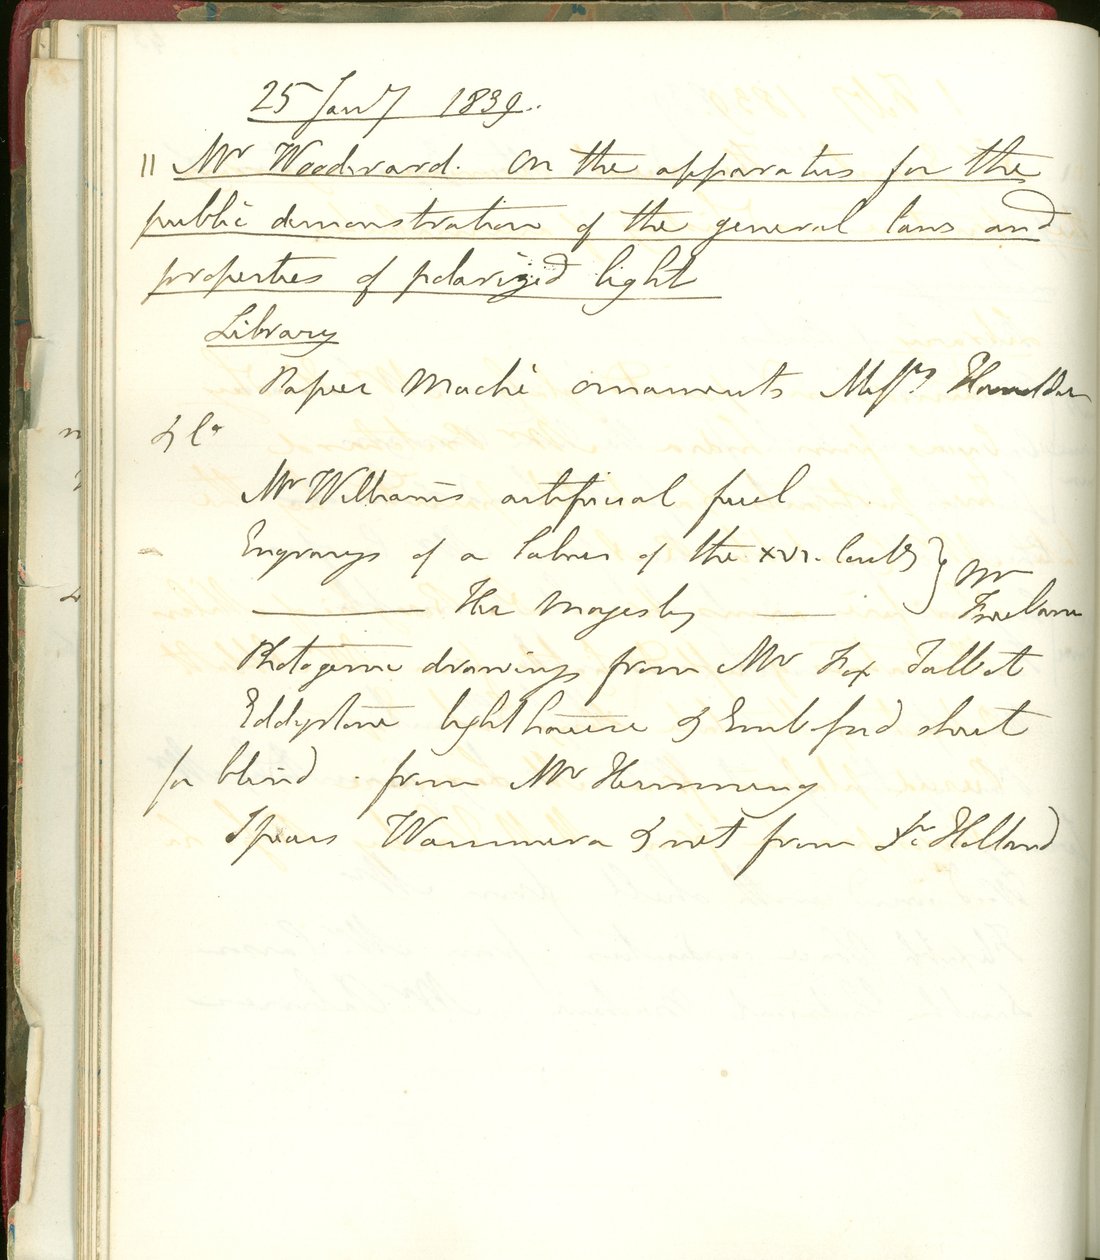 25 Jany 1839.
" Mr Woodward. On the apparatus for the
public demonstration of the general laws and
properties of polarized light
Library
Papier Maché ornaments Messrs
& Co
Mr Williams artificial fuel
Engravgs of a of the XVI. } Mr
——— Her Majesty ———
Photogenic drawings from Mr Fox Talbot
Eddystone lighthouse & Embossd sheet
for blind . from Mr Hemming
Spears Wammera & net from Dr Holland